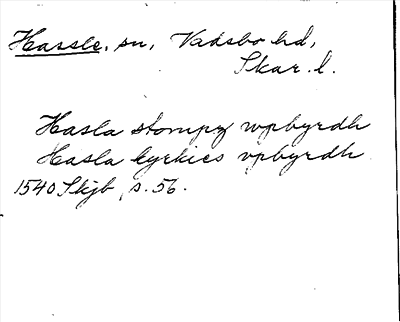 Hassle, sn, Vadsbo hd,
Skar. l.
Hasla stompn wpbyrdh
Hasla kyrkies vpbyrdh
1540 Skjb p. 56.